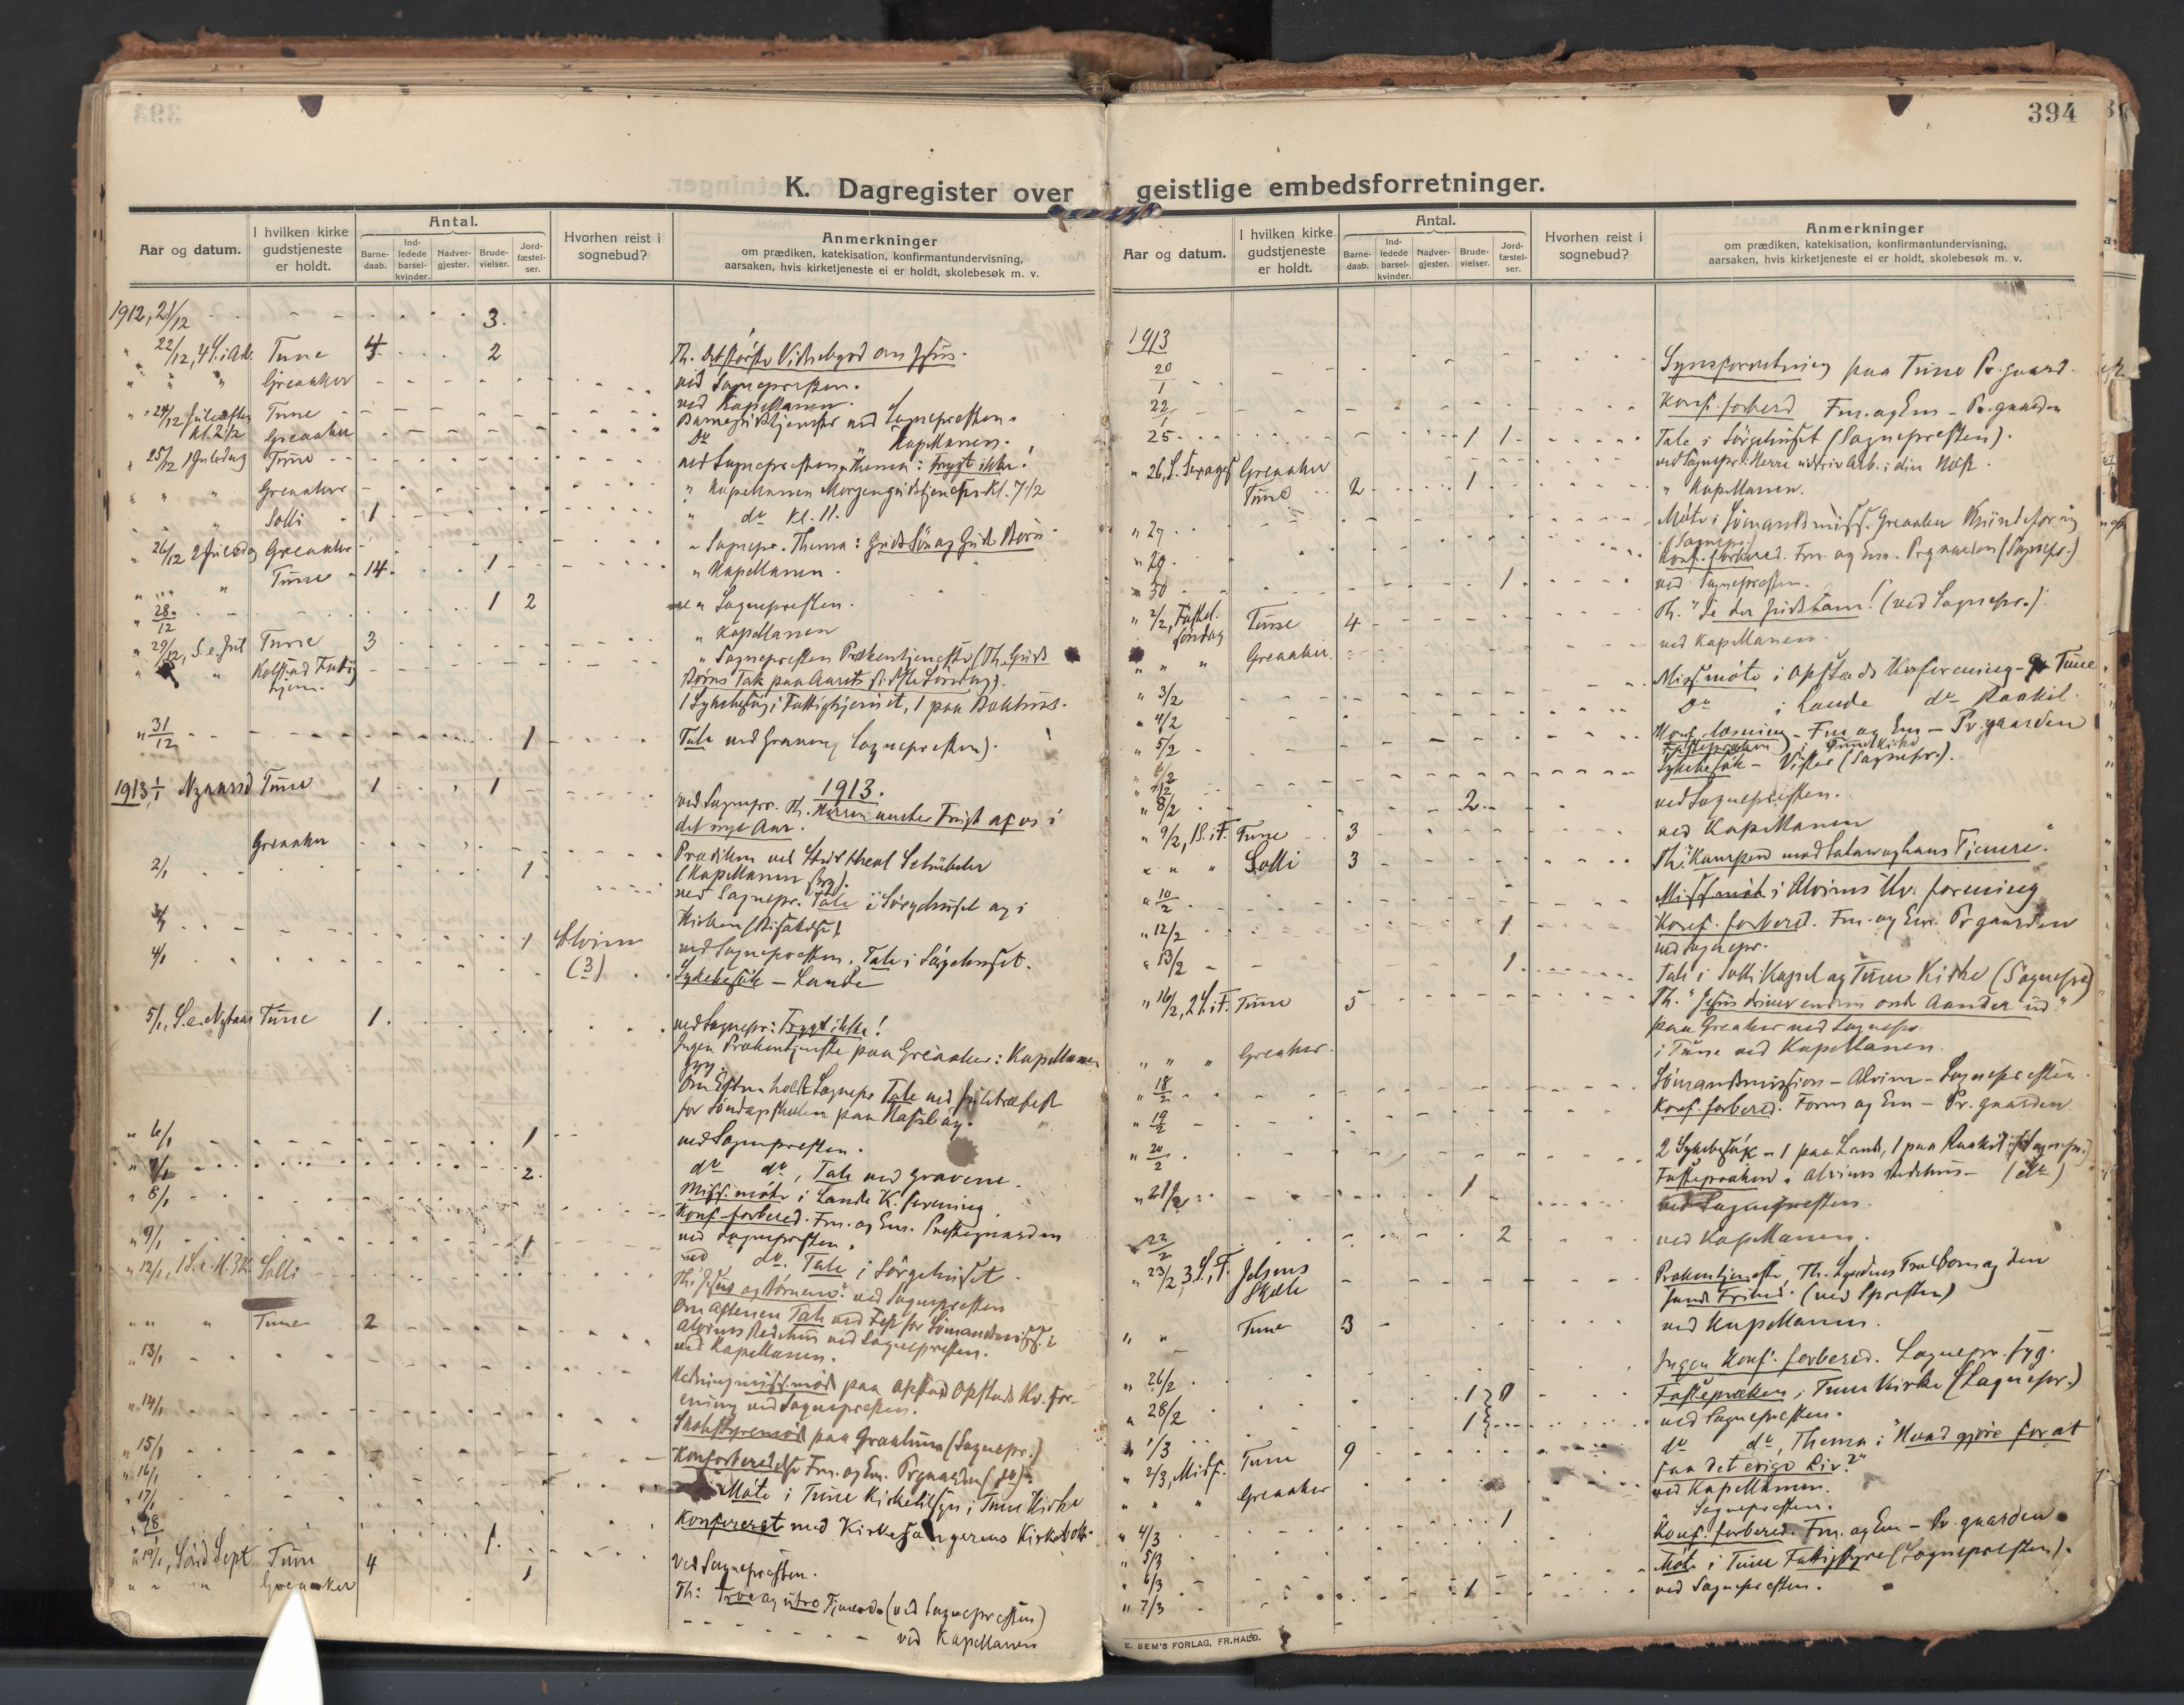 394
K. Dagregister over geistlige embedsforretninger.
Aar og datum.
I hvilken kirke gudstjeneste er holdt.
Antal.
Barne-daab.
Ind-ledede barsel-kvinder.
Nadver-gjester.
Brude-vielser.
Jord-fæstel-ser.
Hvorhen reist i sognebud?
Anmerkninger
om prædiken, katekisation, konfirmantundervisning,
aarsaken, hvis kirketjeneste ei er holdt, skolebesøk m. v.
1912, 21/12 3.
" 22/12, 4 S. i Adv. Tune 4 2 Th. Det største Vidnesbyrd om Jesus.
ved Sognepresten.
" " " Greaaker ved Kapellanen.
" 24/12 Juleaften Kl. 2 1/2 Tune Barnegudstjeneste ved Sognepresten.
Greaaker Do " Kapellanen.
" 25/12 1 Juledag Tune ved Sognepresten. Thema: Frygt ikke!
" " " Greaaker " Kapellanen Morgengudstjeneste Kl. 7 1/2
" " Solli 1 " do Kl. 11.
" 26/12 2 Juledag Greaaker " Sognepr. Thema: Guds Søn og Guds Børn
" " " Tune 14. 1 " Kapellanen.
" 28/12 1 2 " Sognepresten.
" 29/12, S. e. Jul Tune 3 " Kapellanen
" " Kolstad Fattighjem. " Sognepresten Prækentjeneste (Th. Guds
Børns Tak paa Aarets sidste Søndag).
1 Sykebesøg i Fattighjemmet, 1 paa Bakkhus.
" 31/12 1 Tale ved Graven (Sognepresten).
1913.
1913 1/1 Nyaarsd Tune 1 1 ved Sognepr. Th. Herren venter Frugt af os i
det nye Aar.
Greaaker Prædiken ved Stud. theol. Schübeler
(Kapellanen syg).
2/1 1 ved Sognepr. Tale i Sørgehuset og i
Kirken
3/1 1 Alvim (3) ved Sognepresten. Tale i Sørgehuset.
4/1 Sykebesøk – Lande
5/1, S. e. Nytaar Tune 1. ved Sognepr: Frygt ikke!
Ingen Prækentjeneste paa Greaaker: Kapellanen
syg.
Om Eftm. holdt Sognepr Tale ved Juletræfest
for Søndagsskolen paa Hafslund.
" 6/1 1 ved Sognepresten.
" 7/1 2. do do, Tale ved Gravene.
" 8/1 Miss. møte i Lande K. forening.
Konf. forbered. Fm. og Em. Prestegaarden
" 9/1 1 ved Sognepresten.
ved do. Tale i Sørgehuset.
" 12/1, 1 S. e. H. 3 K. Solli Th: "Jesus og Børnene" ved Sognepresten
Om Aftenen Tale ved Fest for Sømandsmiss. i
Alvims Bedehus ved Sognepresten.
" " " Tune 2 ved Kapellanen.
" 13/1 Hedningmiss. møde paa Opstad Opstads Kv. for-
ening ved Sognepresten.
" 14/1 Skolestyremøde paa Graalum (Sognepr.)
" 15/1 Konfforberedelse Fm. og Em. Prgaarden (do).
" 16/1 Møte i Tune Kirketilsyn i Tune Kirke
" 17/1 Konfereret med Kirkesangerens Kirkebok.
" 18/1 1. ved Sognepresten.
" 19/1, Sønd Sept Tune 4 1 Th: Tro og utro Tjenere (ved Sognepresten)
" " " Greaaker ved Kapellanen
394
Aar og datum.
I hvilken kirke gudstjeneste er holdt.
Antal.
Barne-daab.
Ind-ledede barsel-kvinder.
Nadver-gjester.
Brude-vielser.
Jord-fæstel-ser.
Hvorhen reist i sognebud?
Anmerkninger
om prædiken, katekisation, konfirmantundervisning,
aarsaken, hvis kirketjeneste ei er holdt, skolebesøk m. v.
1913
20/1 Synsforretning paa Tune Pr.gaard.
22/1 Konf. forbered Fm. og Em – Pr.gaarden
25 1 1 Tale i Sørgehuset (Sognepresten).
" 26, S. Sexages Greaaker ved Sognepr: Herre utdriv Arb. i din Høst.
Tune 2 1 " Kapellanen.
" 27 Møte i Sømandsmiss. Greaaker Kvindeforening
(Sognepr.)
" 29 Konf. forbered. Fm. og Em. Prgaarden (Sognepr.)
" 30 1 ved Sognepresten.
" 2/2, Fastel. søndag Tune 4 Th. "Se der Guds Lam!" (ved Sognepr.)
" " " Greaaker. ved Kapellanen.
" 3/2 Miss. møte i Opstads Kvforening – Tune
" 4/2 Do i Lande do Raakil.
" 5/2 Konf. læsning – Fm og Em – Pr.gaarden
Fastepræken i Tune Kirke
" 6/2 Sykebesøk – Vister (Sognepr.).
" 7/2
" 8/2 2. ved Sognepresten.
" 9/2, 1 S. i F. Tune 3 ved Kapellanen
" " " Solli 3 Th: "Kampen mod Satan og hans Tjenere."
" 10/2 Miss. møte i Alvims Kv. forening
" 12/2 1 Konf. forbered. Fm. og Em. Prgaarden
ved Sognepr.
" 13/2 1. Tale i Solli Kapel og Tune Kirke (Sognepr)
" 16/2, 2 S. i F. Tune 5 Th. "Jesus driver endnu onde Aander ud"
paa Greaaker ved Sognepr
" " " Greaker. i Tune ved Kapellanen.
" 18/2 Sømandsmission – Alvim – Sognepresten.
" 19/2 Konf. forbered. Form og Em – Pr. gaarden
" 20/2 2 Sykebesøk – 1 paa Lande, 1 paa Raakil (Sognepr.)
Fastepræken i Alvims Bedehus – (do)
" 21/2 1 ved Sognepresten.
" 22/2 2 ved Kapellanen.
" 23/2 3 S. i F. Jelsens Skole Prækentjeneste, Th. Lovens Trælbarn og den
(ved Spresten)
" " Tune 3 ved Kapellanen.
Ingen Konf. forbered. Sognepr. syg.
" 26/2 Fastepræken i Tune Kirke (Sognepr.)
" 28/2 1 ved Sognepresten.
" 1/3 1 do do, Thema: "Hvad gjøre for at
" 2/3, Midf. Tune 9 faa det evige Liv?"
ved Kapellanen.
" " " Greaaker " Sognepresten.
" 4/3 1
" 5/3 Konf. forbered. Fm. og Em – Pr. gaarden
" 6/3 Møte i Tune Fattigstyre (Sognepresten).
" 7/3 1 ved Sognepresten.
E. SEM'S FORLAG, FR.HALD.